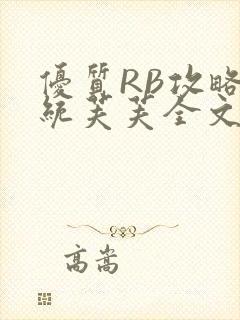 優質RB攻略
統芙芙全文
高嵩